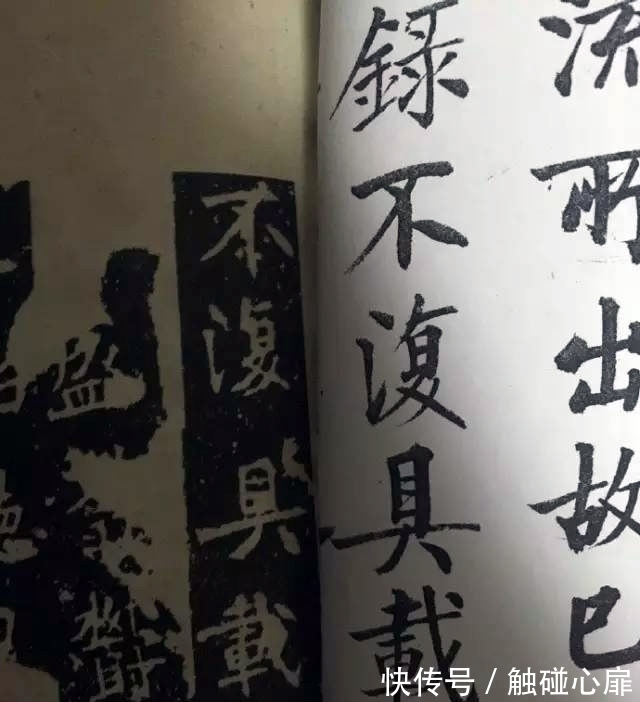 流所出故已
錄不復具載
不復具載
盈
快传号 / 触碰心扉